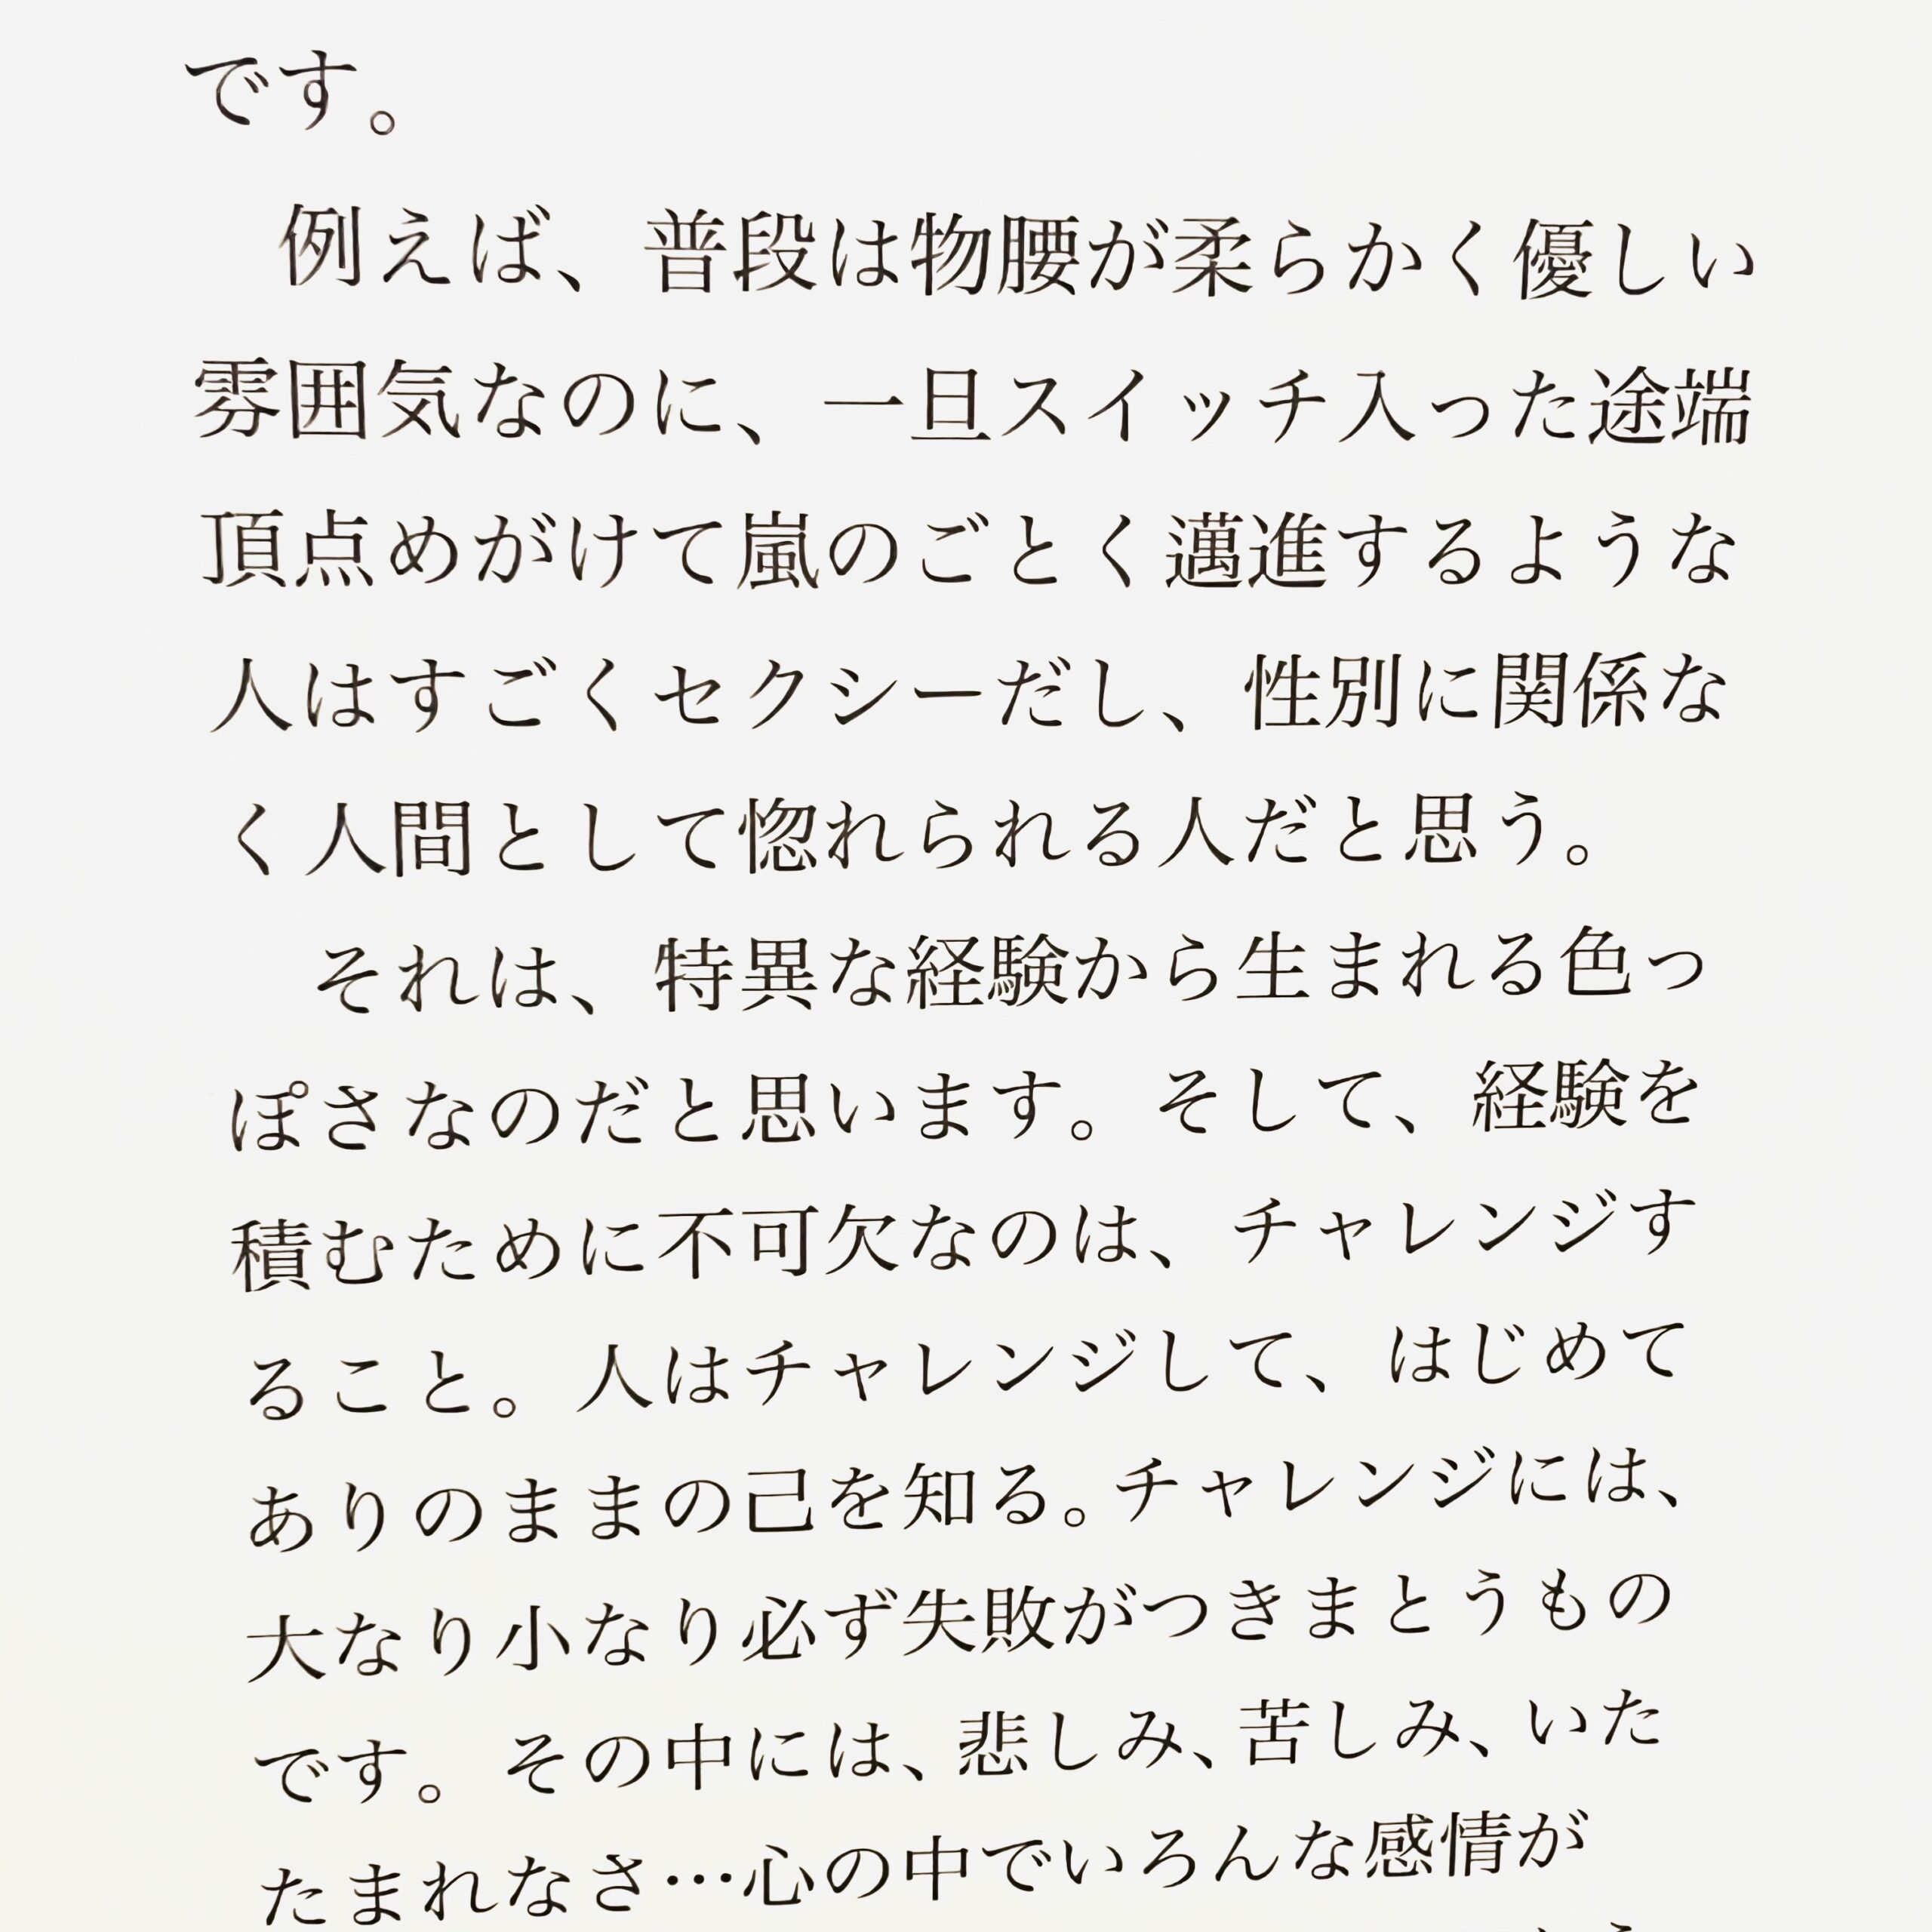 です。
例えば、普段は物腰が柔らかく優しい
雰囲気なのに、一旦スイッチ入った途端
頂点めがけて嵐のごとく邁進するような
人はすごくセクシーだし、性別に関係な
く人間として惚れられる人だと思う。
それは、特異な経験から生まれる色っ
ぽさなのだと思います。そして、経験を
積むために不可欠なのは、チャレンジす
ること。人はチャレンジして、はじめて
ありのままの己を知る。チャレンジには、
大なり小なり必ず失敗がつきまとうもの
です。その中には、悲しみ、苦しみ、いた
たまれなさ…心の中でいろんな感情が